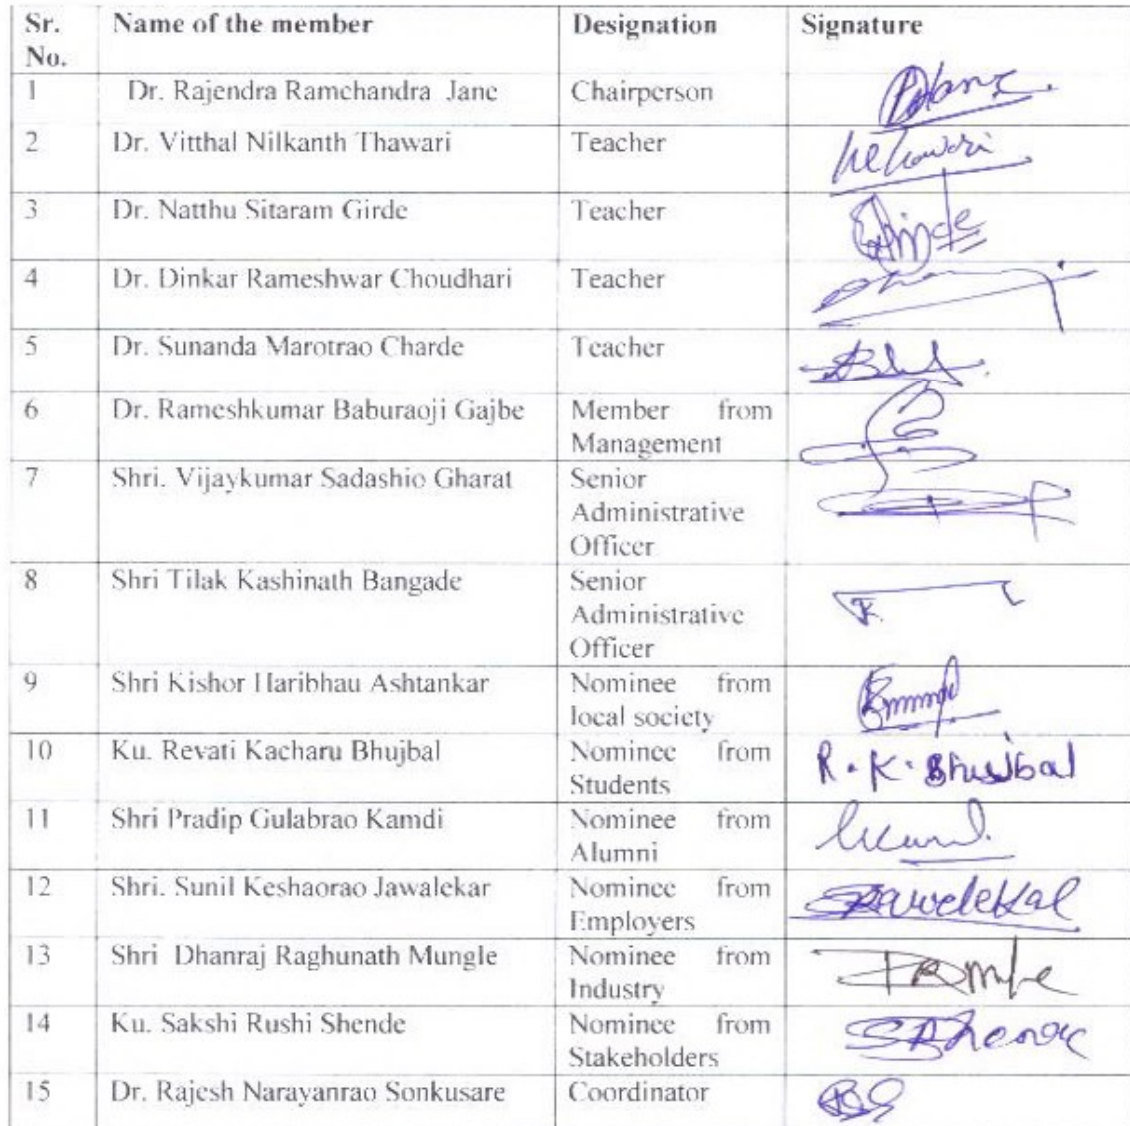 Sr. No. Name of the member Designation Signature
1 Dr. Rajendra Ramchandra Jane Chairperson
2 Dr. Vitthal Nilkanth Thawari Teacher
3 Dr. Natthu Sitaram Girde Teacher
4 Dr. Dinkar Rameshwar Choudhari Teacher
5 Dr. Sunanda Marotrao Charde Teacher
6 Dr. Rameshkumar Baburaoji Gajbe Member from
Management
7 Shri. Vijaykumar Sadashio Gharat Senior
Administrative
Officer
8 Shri Tilak Kashinath Bangade Senior
Administrative
Officer
9 Shri Kishor Haribhau Ashtankar Nominee from
local society
10 Ku. Revati Kacharu Bhujbal Nominee from R. K. Bhujbal
Students
11 Shri Pradip Gulabrao Kamdi Nominee from
Alumni
12 Shri. Sunil Keshaorao Jawalekar Nominee from
Employers
13 Shri Dhanraj Raghunath Mungle Nominee from
Industry
14 Ku. Sakshi Rushi Shende Nominee from
Stakeholders
15 Dr. Rajesh Narayanrao Sonkusare Coordinator